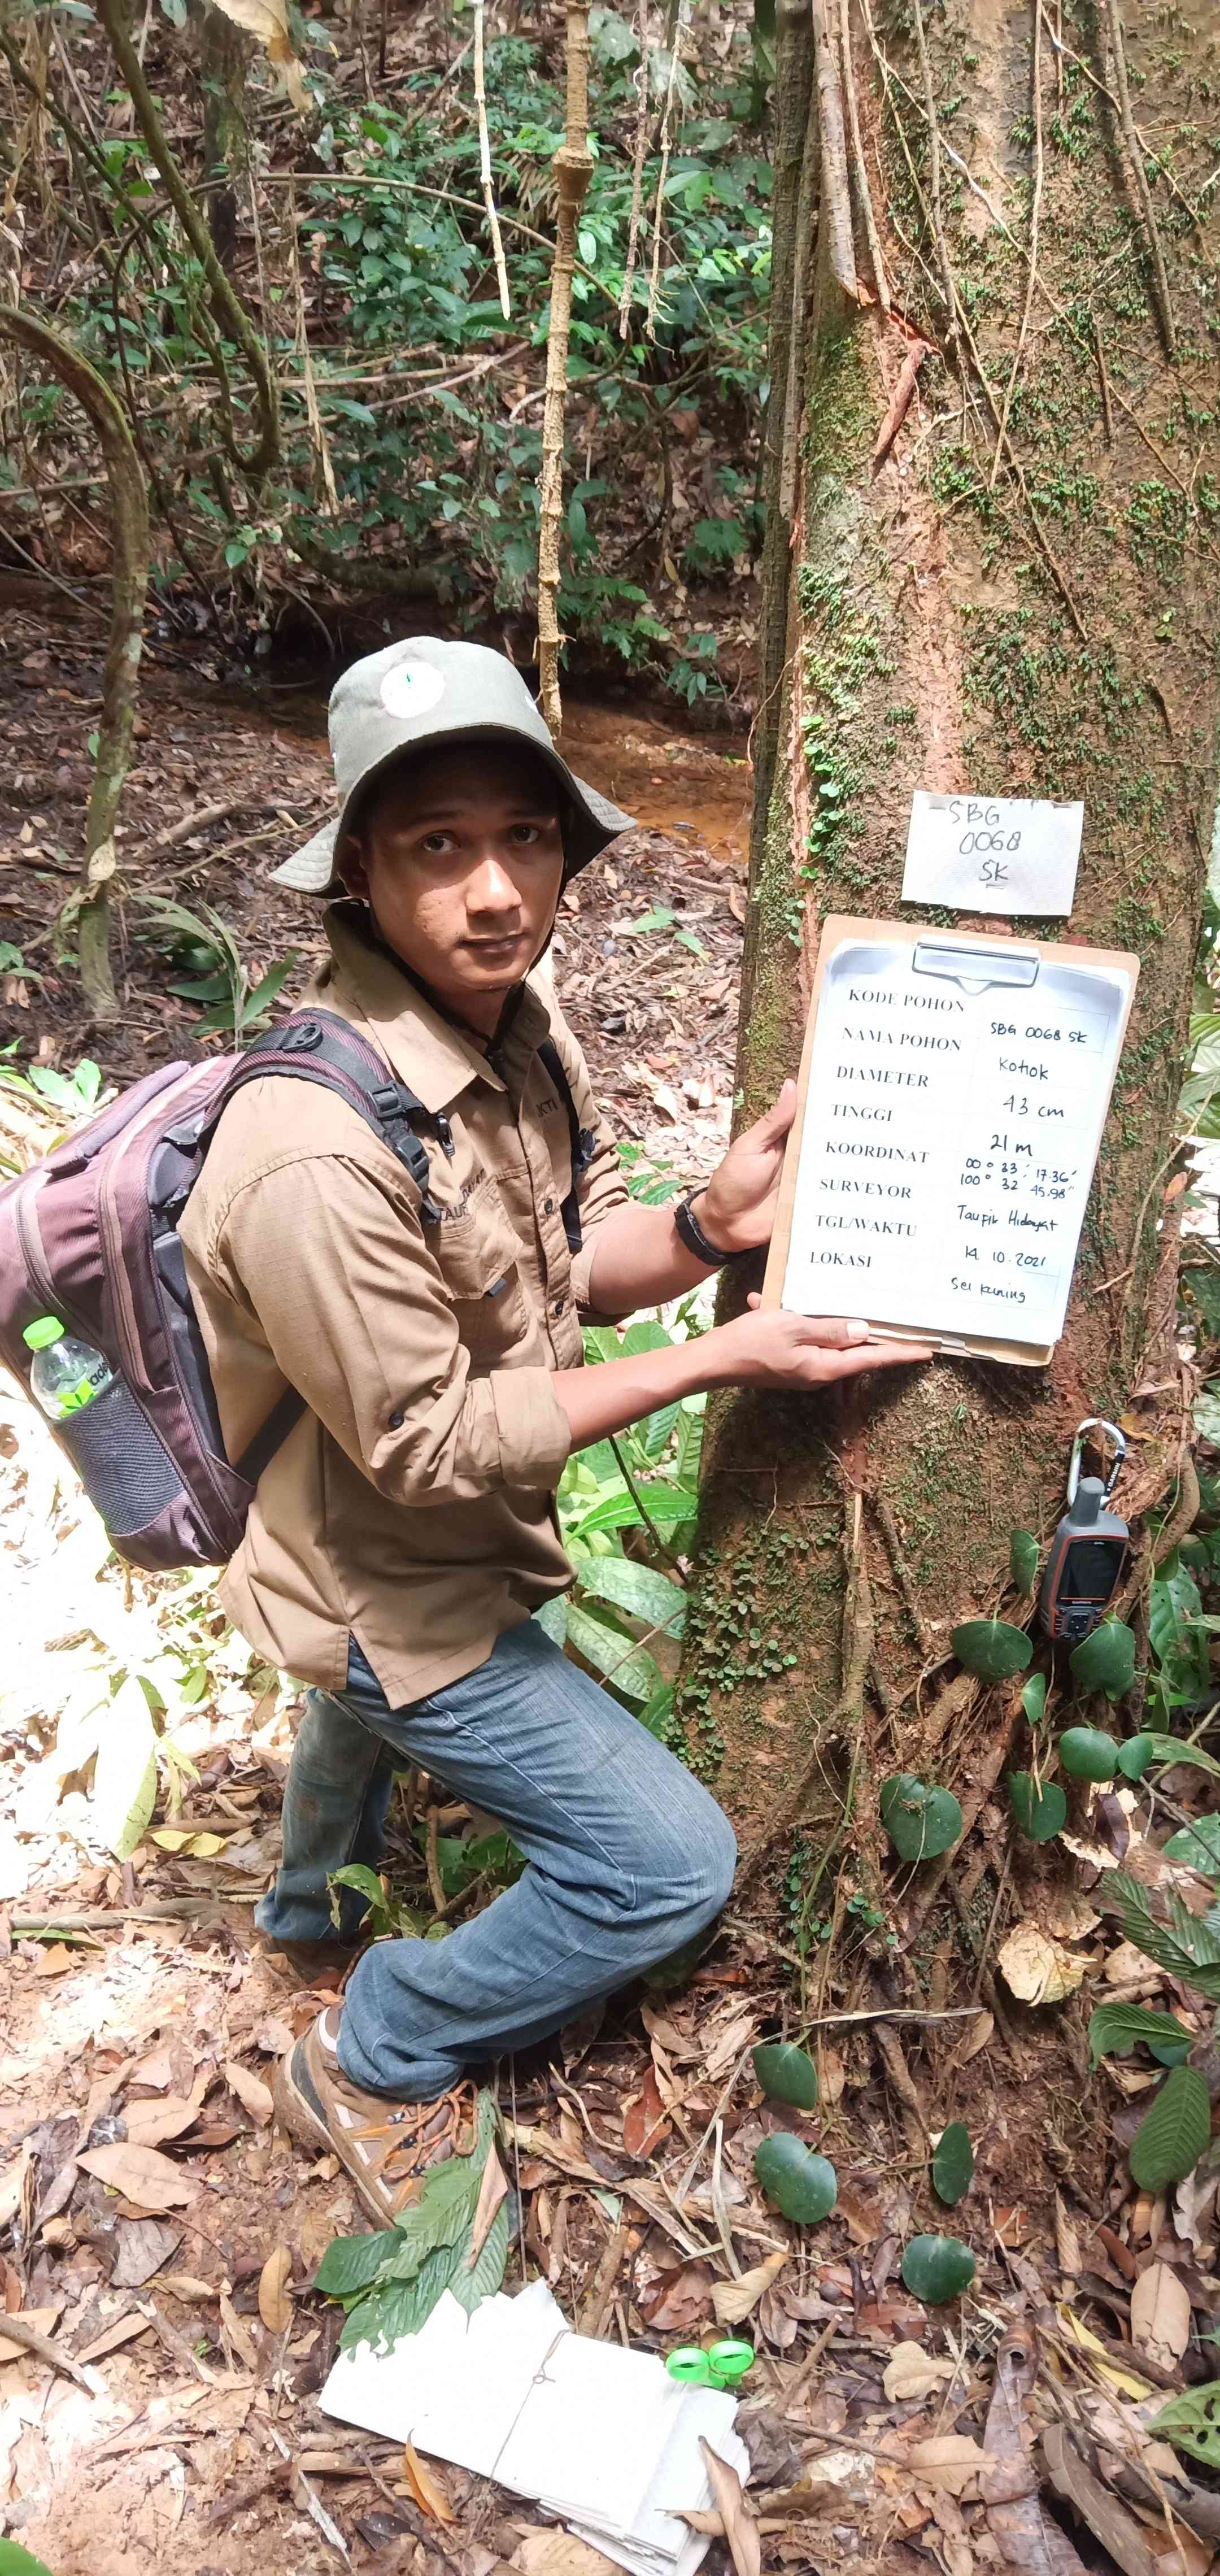 SBG
0068
SK
KODE POHON SBG 0068 SK
NAMA POHON Kotiok
DIAMETER 43 cm
TINGGI 21 m
KOORDINAT 00° 33' 17.36"
100° 32 45.98"
SURVEYOR Taufik Hidayat
TGL/WAKTU 14. 10. 2021
LOKASI Sei Kuning
GARMIN